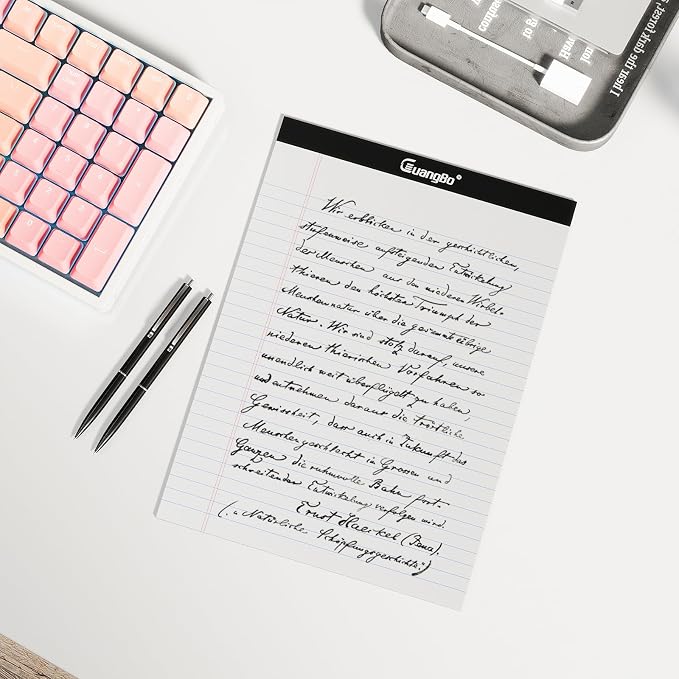 GuangBo®
Wir erblicken in der geschichtlichen,
stufenweise aufsteigenden Entwickelung
der Menschen aus den niederen Wirbel-
thieren den höchsten Triumph der
Menschennatur über die gesammte übrige
Natur. Wir sind stolz darauf, unsere
niederen thierischen Vorfahren so
unendlich weit überflügelt zu haben,
und entnehmen daraus die tröstliche
Gewissheit, dass auch in Zukunft das
Menschengeschlecht im Grossen und
Ganzen die ruhmvolle Bahn fort-
schreitender Entwickelung verfolgen wird.
Ernst Haeckel (Jena).
(„Natürliche Schöpfungsgeschichte“)
I hear the dark forest,
to go
Have